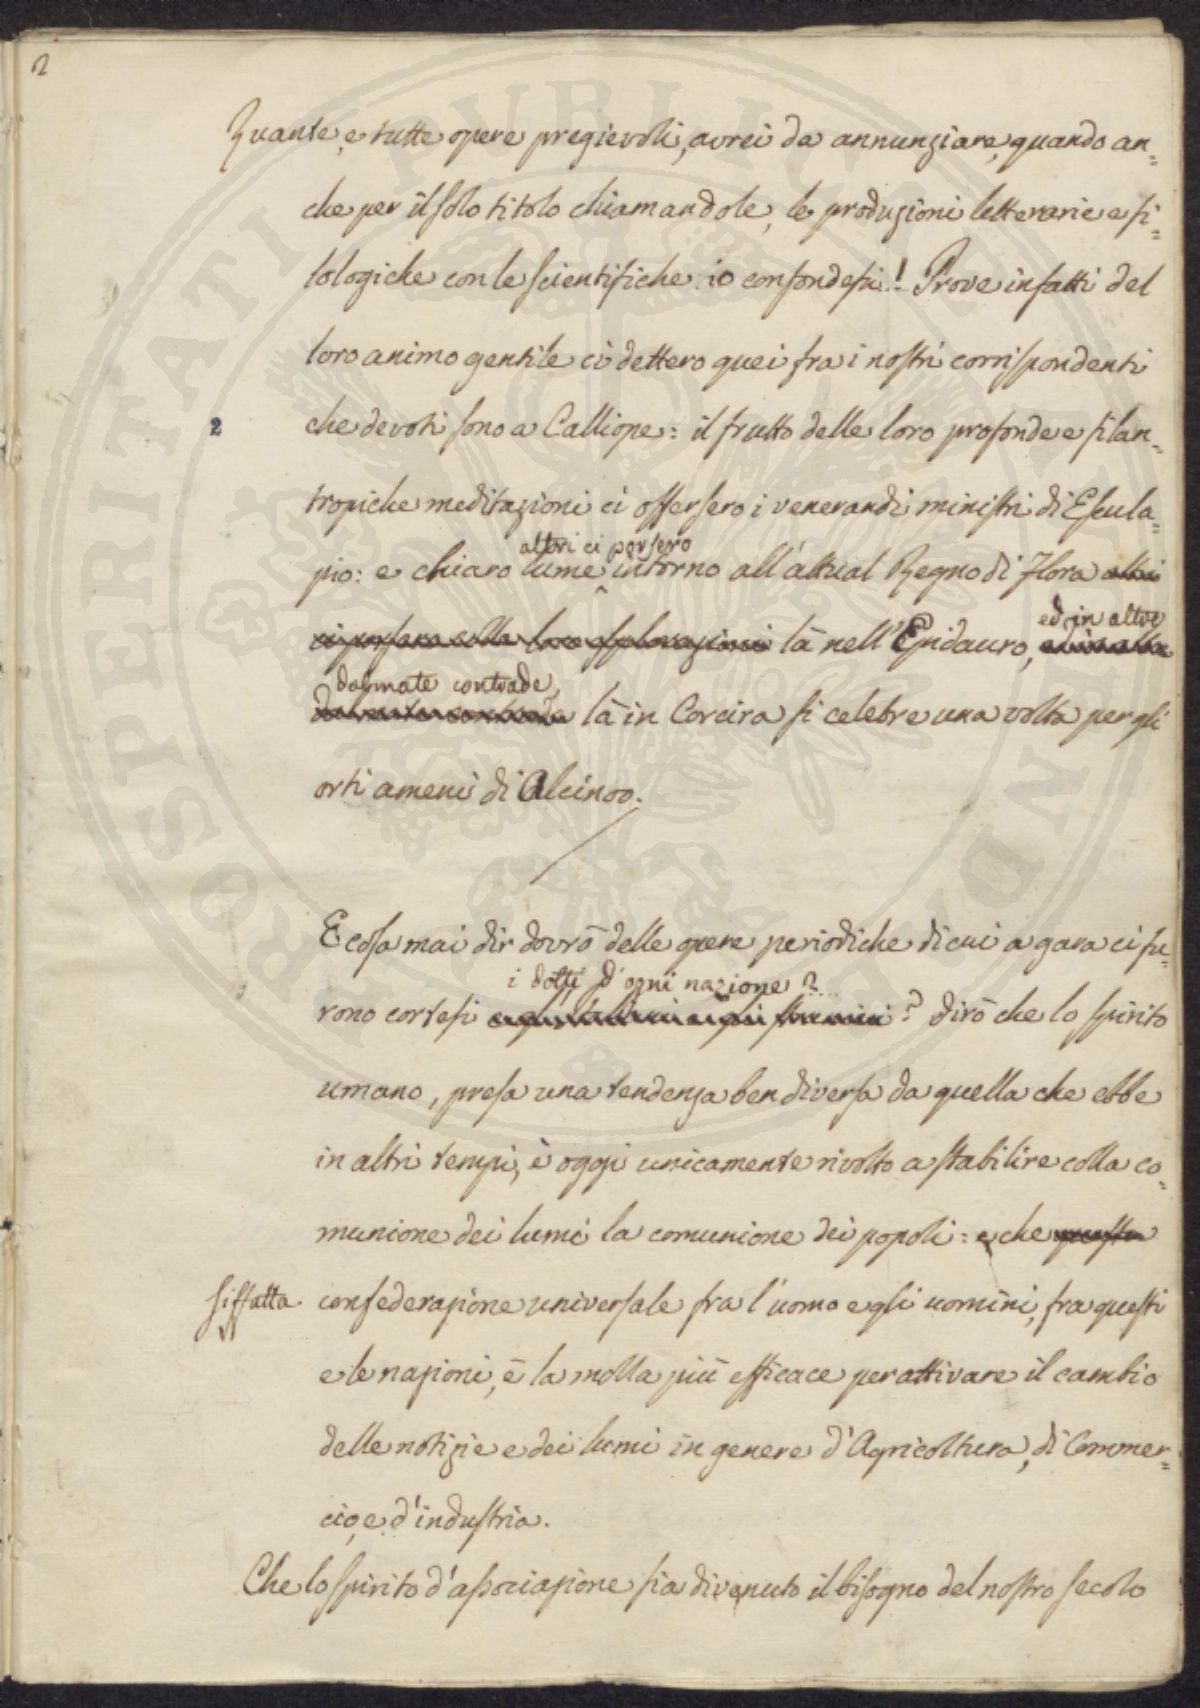 2
Quante, e tutte opere pregievoli, avrei da annunziare, quando an=
che per il solo titolo chiamandole, le produzioni letterarie e fi=
lologiche con le scientifiche io confondessi! Prove infatti del
loro animo gentile ci dettero quei fra i nostri corrispondenti
2
che devoti sono a Calliope: il frutto delle loro profonde e filan=
tropiche meditazioni ci offersero i venerandi ministri di Escula=
altri ci porsero
pio: e chiaro lume intorno all'attual Regno di Flora altri
ed in altre
ci porsero colle loro esplorazioni là nell'Epidauro,
dalmate contrade,
dalmate contrade là in Corcira sì celebre una volta per gli
orti ameni di Alcinoo.
E cosa mai dir dovrò delle opere periodiche di cui a gara ci fu=
i dotti d'ogni nazione?
rono cortesi e gl'italiani e gli stranieri? dirò che lo spirito
umano, presa una tendenza ben diversa da quella che ebbe
in altri tempi, è oggi unicamente rivolto a stabilire colla co=
munione dei lumi la comunione dei popoli: e che questa
siffatta confederazione universale fra l'uomo e gli uomini, fra questi
e le nazioni, è la molla più efficace per attivare il cambio
delle notizie e dei lumi in genere d'Agricoltura, di Commer=
cio, e d'industria.
Che lo spirito d'associazione sia divenuto il bisogno del nostro secolo
PROSPERITATI PUBLICAE AUGENDAE